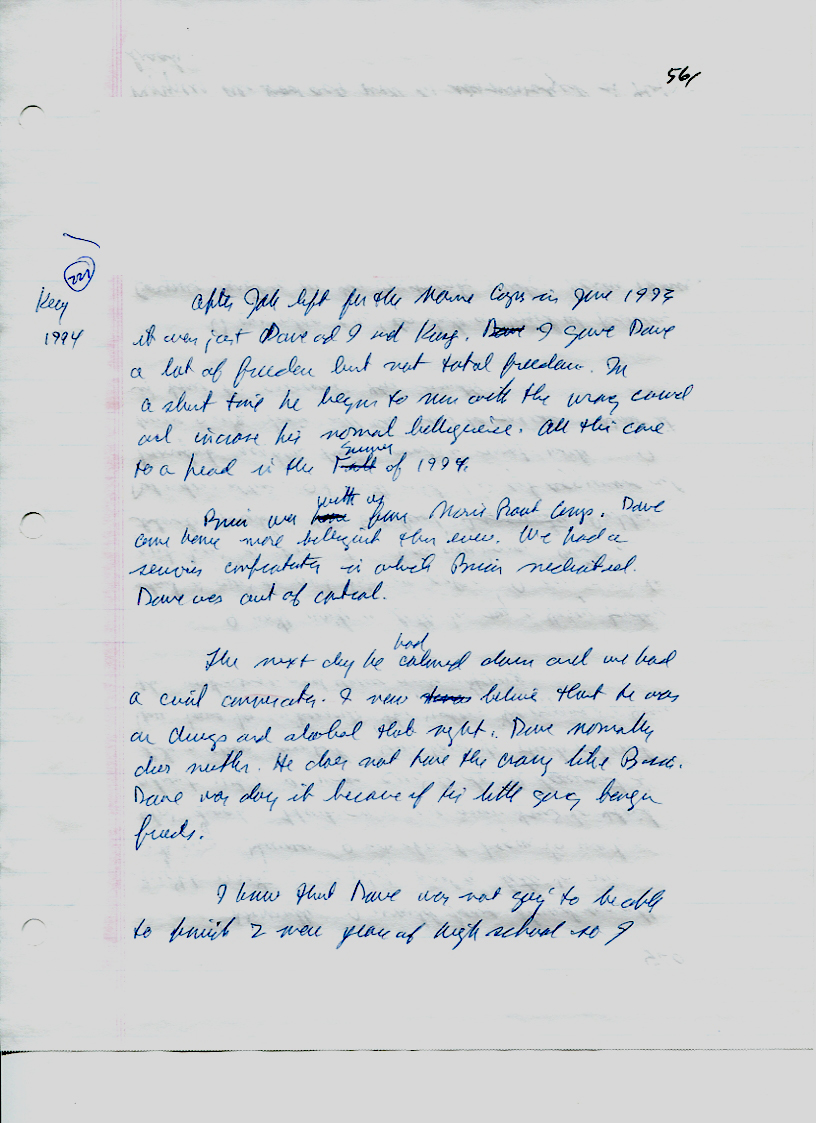 56/
222
Keey
1994
After Jeff left for the Marine Corps in June 1993
it was just Dave and I and King. Dave I gave Dave
a lot of freedom but not total freedom. In
a short time he began to run with the wrong crowd
and increase his normal belligerence. All this came
to a head in the Fall Summer of 1994.
Brian was home with us from Marine Corps. Dave
came home more belligerent then ever. We had a
serious confrontation in which Brian mediated.
Dave was out of control.
The next day he had calmed down and we had
a civil conversation. I now believe that he was
on drugs and alcohol that night. Dave normally
does neither. He does not have the craving like Brian.
Dave was doing it because of his little gang banger
friends.
I knew that Dave was not going to be able
to finish 2 more years of high school so I